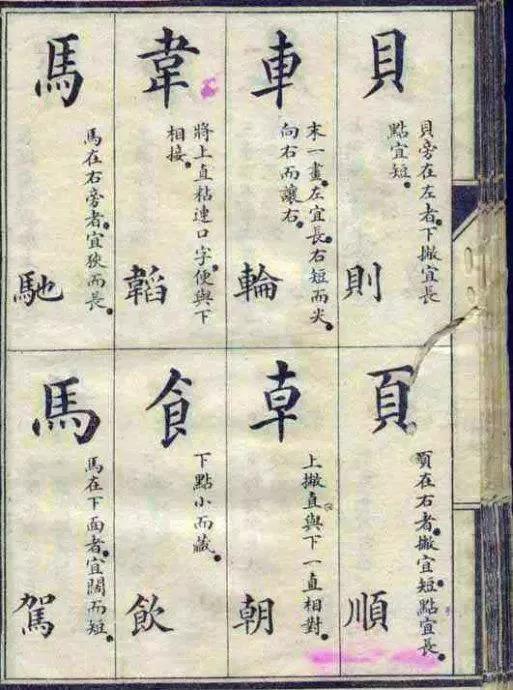 貝
貝旁在左者。下撇宜長
點宜短。
則
車
末一畫。左宜長。右短而尖。
向右而讓右。
輪
韋
將上直粘連口字。便與下
相接。
韜
馬
馬在右旁者。宜狹而長。
馳
頁
頁在右者。撇宜短。點宜長。
順
卓
上撇直與下一直相對。
朝
飠
下點小而藏。
飲
馬
馬在下面者。宜闊而短。
駕